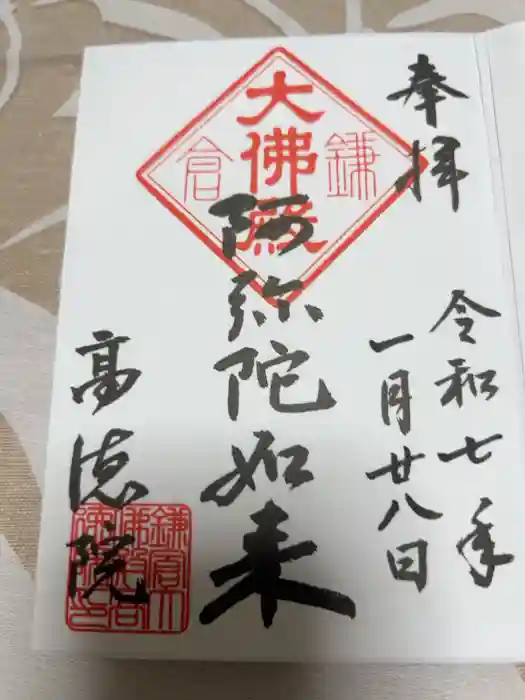 奉拝
令和七年
一月廿八日
鎌倉
大佛殿
阿弥陀如来
高徳院